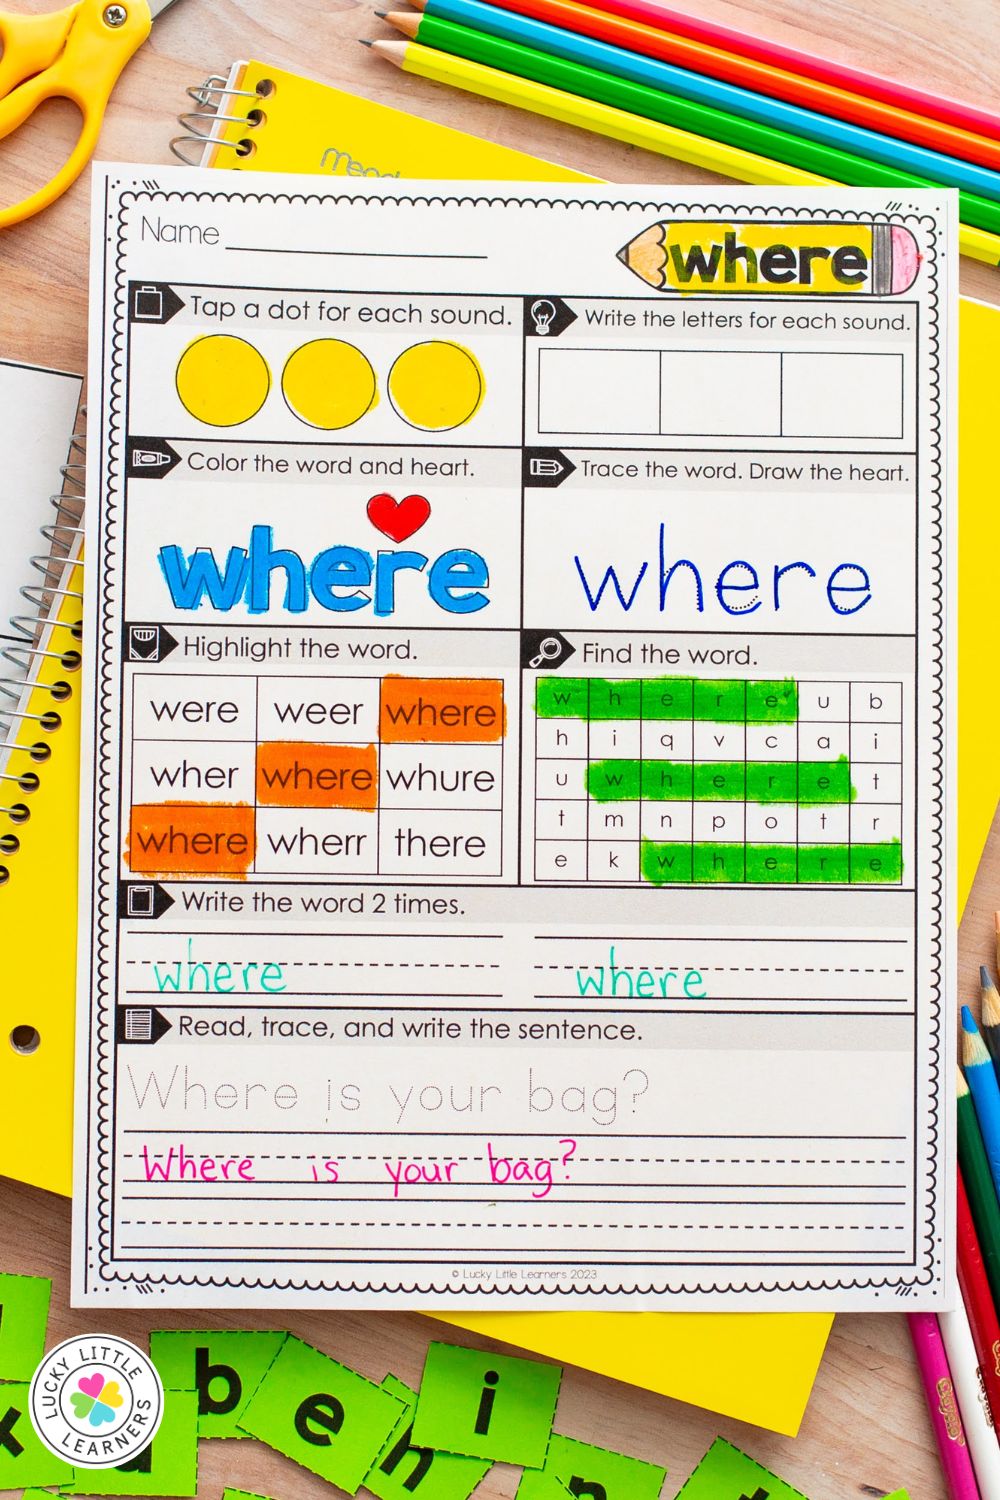 Name
where
Tap a dot for each sound.
Write the letters for each sound.
Color the word and heart.
where
Trace the word. Draw the heart.
where
Highlight the word.
were weer where
wher where whure
where wherr there
Find the word.
w h e r e u b
h i q v c a i
u w h e r e t
t m n p o t r
e k w h e r e
Write the word 2 times.
where where
Read, trace, and write the sentence.
Where is your bag?
Where is your bag?
© Lucky Little Learners 2023
LUCKY LITTLE
LEARNERS
b
e
i